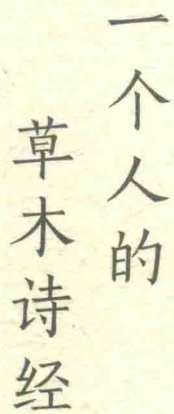 一个人的
草木诗经